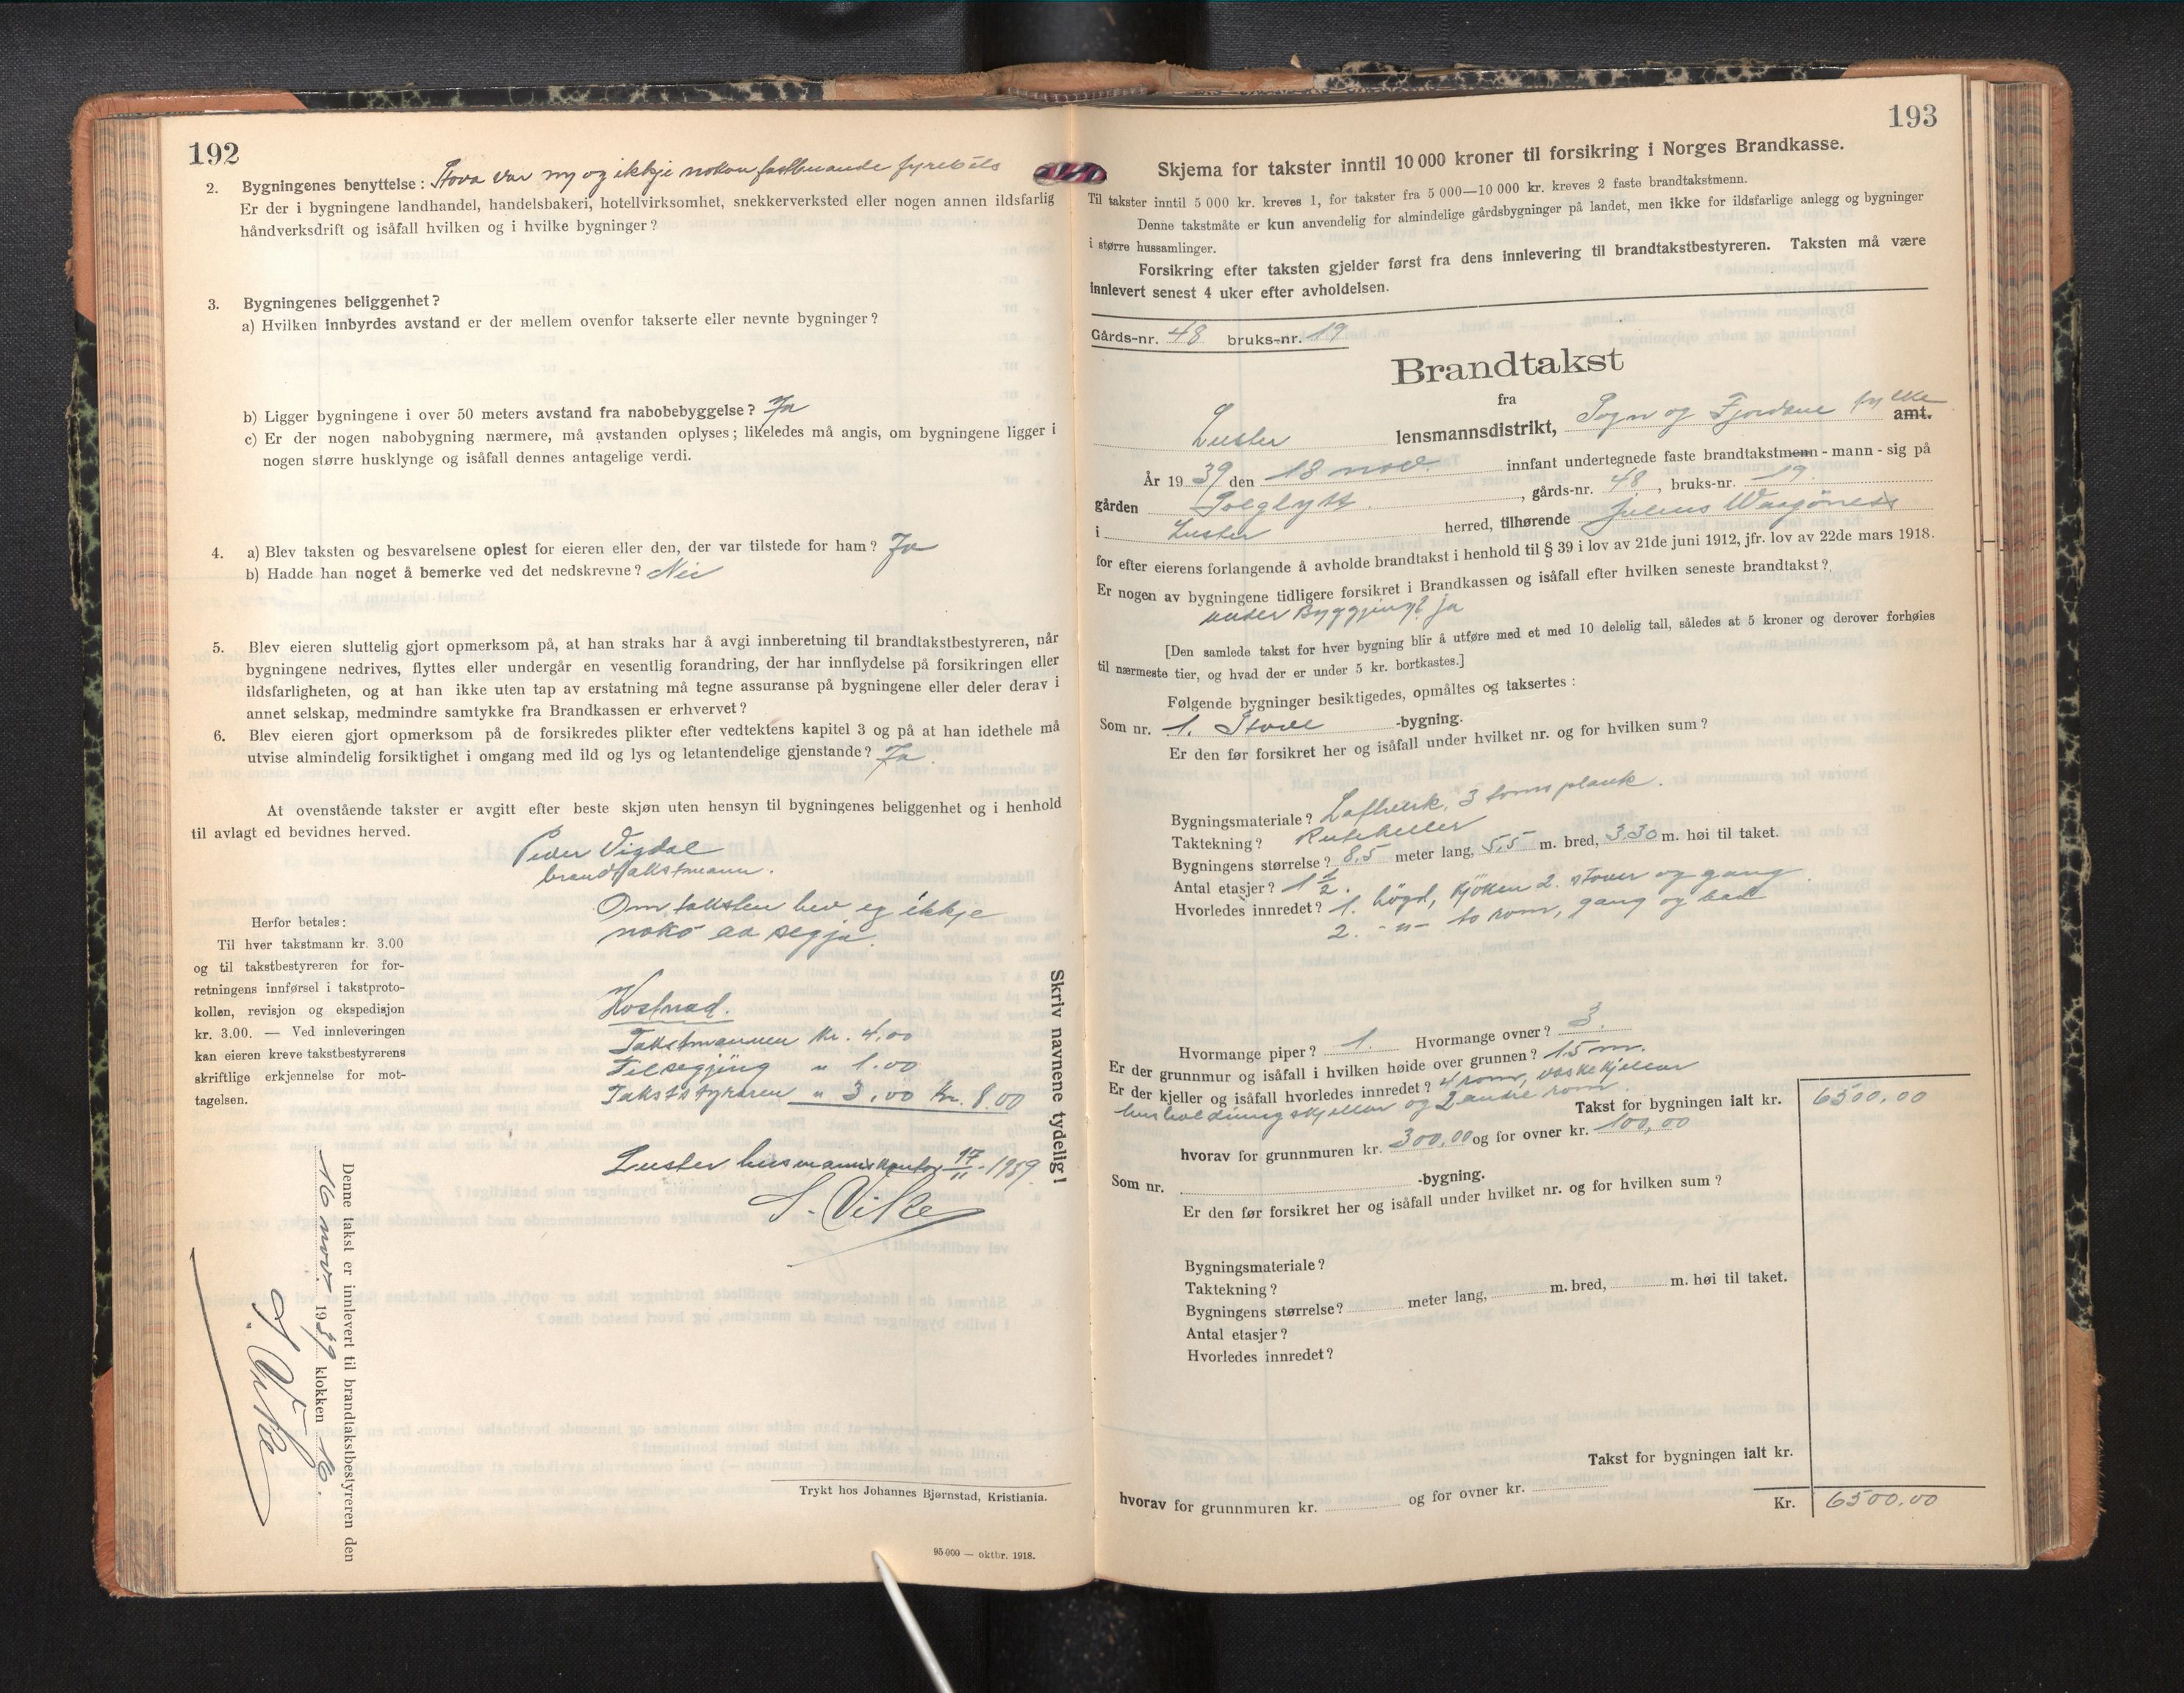 192
2. Bygningenes benyttelse: Stova var ny og ikkje nokon fastbuande fyrebils
Er der i bygningene landhandel, handelsbakeri, hotellvirksomhet, snekkerverksted eller nogen annen ildsfarlig
håndverksdrift og isåfall hvilken og i hvilke bygninger?
3. Bygningenes beliggenhet?
a) Hvilken innbyrdes avstand er der mellem ovenfor takserte eller nevnte bygninger?
b) Ligger bygningene i over 50 meters avstand fra nabobebyggelse? Ja
c) Er der nogen nabobygning nærmere, må avstanden oplyses; likeledes må angis, om bygningene ligger i
nogen større husklynge og isåfall dennes antagelige verdi.
4. a) Blev taksten og besvarelsene oplest for eieren eller den, der var tilstede for ham? Ja
b) Hadde han noget å bemerke ved det nedskrevne? Nei
5. Blev eieren sluttelig gjort opmerksom på, at han straks har å avgi innberetning til brandtakstbestyreren, når
bygningene nedrives, flyttes eller undergår en vesentlig forandring, der har innflydelse på forsikringen eller
ildsfarligheten, og at han ikke uten tap av erstatning må tegne assuranse på bygningene eller deler derav i
annet selskap, medmindre samtykke fra Brandkassen er erhvervet?
6. Blev eieren gjort opmerksom på de forsikredes plikter efter vedtektens kapitel 3 og på at han idethele må
utvise almindelig forsiktighet i omgang med ild og lys og letantendelige gjenstande? Ja.
At ovenstående takster er avgitt efter beste skjøn uten hensyn til bygningenes beliggenhet og i henhold
til avlagt ed bevidnes herved.
Peder Vigdal
brandtakstmann.
Om taksten hev eg ikkje
noko aa segja.
Herfor betales:
Til hver takstmann kr. 3.00
og til takstbestyreren for for-
retningens innførsel i takstproto-
kollen, revisjon og ekspedisjon
kr. 3.00. — Ved innleveringen
kan eieren kreve takstbestyrerens
skriftlige erkjennelse for mot-
tagelsen.
Kostnad.
Takstmannen kr. 4,00
Tilsegjing " 1.00
Takststyraren " 3,00 Kr. 8.00
Luster lensmannskontor 17/11-1939.
S. Vike
Skriv navnene tydelig!
Denne takst er innlevert til brandtakstbestyreren den
16 nov. 1939 klokken 16.
S. Vike
Trykt hos Johannes Bjørnstad, Kristiania.
95 000 — oktbr. 1918.
193
Skjema for takster inntil 10 000 kroner til forsikring i Norges Brandkasse.
Til takster inntil 5 000 kr. kreves 1, for takster fra 5 000—10 000 kr. kreves 2 faste brandtakstmenn.
Denne takstmåte er kun anvendelig for almindelige gårdsbygninger på landet, men ikke for ildsfarlige anlegg og bygninger
i større hussamlinger.
Forsikring efter taksten gjelder først fra dens innlevering til brandtakstbestyreren. Taksten må være
innlevert senest 4 uker efter avholdelsen.
Gårds-nr. 48 bruks-nr. 19
Brandtakst
fra
Luster lensmannsdistrikt, Sogn og Fjordane fylke amt.
År 1939 den 18 nov. innfant undertegnede faste brandtakstmenn - mann - sig på
gården Solglytt, gårds-nr. 48, bruks-nr. 19.
i Luster herred, tilhørende Julius
for efter eierens forlangende å avholde brandtakst i henhold til § 39 i lov av 21de juni 1912, jfr. lov av 22de mars 1918.
Er nogen av bygningene tidligere forsikret i Brandkassen og isåfall efter hvilken seneste brandtakst?
under Byggjing? ja
[Den samlede takst for hver bygning blir å utføre med et med 10 delelig tall, således at 5 kroner og derover forhøies
til nærmeste tier, og hvad der er under 5 kr. bortkastes.]
Følgende bygninger besiktigedes, opmåltes og taksertes:
Som nr. 1. Stove -bygning.
Er den før forsikret her og isåfall under hvilket nr. og for hvilken sum?
Bygningsmateriale? Laftverk, 3 toms plank.
Taktekning? Ruteheller
Bygningens størrelse? 8,5 meter lang, 5,5 m. bred, 3.30 m. høi til taket.
Antal etasjer? 1 1/2.
Hvorledes innredet? 1. høgd, kjøken 2. stover og gang
2. -"- to rom, gang og bad
Hvormange piper? 1. Hvormange ovner? 3.
Er der grunnmur og isåfall i hvilken høide over grunnen? 1.5 m.
Er der kjeller og isåfall hvorledes innredet? 4 rom, vaskekjellar
hushaldningskjellar og 2 andre rom.
Takst for bygningen ialt kr. 6500,00
hvorav for grunnmuren kr. 300,00 og for ovner kr. 100,00
Som nr. -bygning.
Er den før forsikret her og isåfall under hvilket nr. og for hvilken sum?
Bygningsmateriale?
Taktekning?
Bygningens størrelse? meter lang, m. bred, m. høi til taket.
Antal etasjer?
Hvorledes innredet?
Takst for bygningen ialt kr.
hvorav for grunnmuren kr. og for ovner kr.
Kr. 6500.00